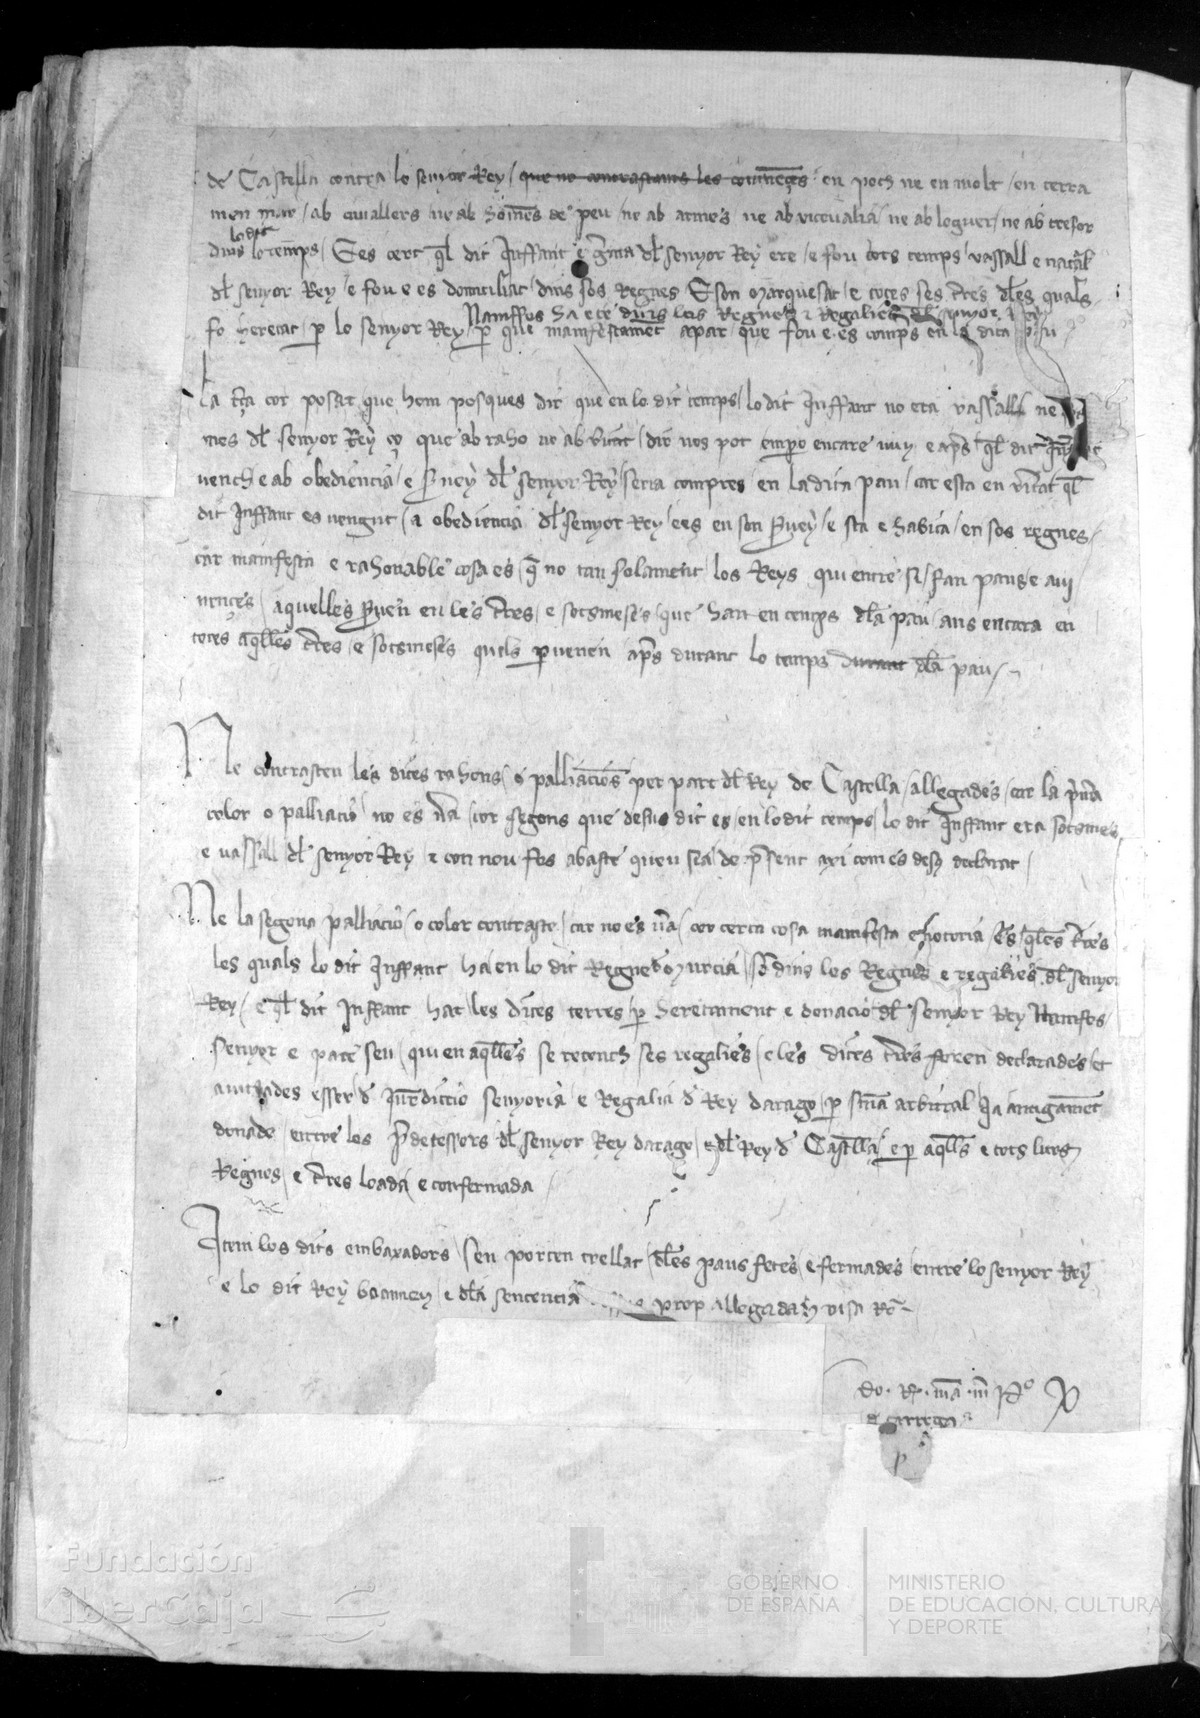 de Castella contra lo senyor Rey / que no contrastants les couinençes en poch ne en molt / en terra
ne en mar / ab cauallers / ne ab homes de peu / ne ab armes ne ab vitualla ne ab loguer / ne ab tresor
lo dit
dins lo temps / E es cert ql dit Inffant e germa dl senyor Rey ere / e fou tots temps vassall e natal
dl senyor Rey / e fou e es domiciliat / dins sos Regnes E son marquesat / e totes ses tres dles quals
Namffos ha e te dins los Regnes e Regalies dl senyor Rey
fo heretat / p lo senyor Rey / p que manifestament apar / que fou e es compres en la dita pau
La tça cor posat que hom posques dir que en lo dit temps / lo dit Inffant no era vassall ne
mes dl senyor Rey ço que ab raho ne ab veritat / dir nos pot empo encare uuy e aps ql dit Inffant
vench e ab obediencia / e seruey dl senyor Rey / seria compres / en la dita pau / car esta en veritat ql
dit Inffant es vengut / a obediencia dl senyor Rey / e es en son seruey / e sta e habita / en sos regnes /
car manifesta e rahonable cosa es / q no tan solament / los Reys qui entre si / fan paus e aui
nençes / aquelles seruen en les tres / e sotsmeses / que han en temps dla pau / ans encara en
totes aqlles tres / e sotsmeses quels peruenen aps durant lo temps durant dla pau /
Ne contrasten les dites rahons / o palliacions per part dl Rey de Castella / allegades / car la pmera
color o palliacio / no es ua / cor segons que desus dit es / en lo dit temps / lo dit Inffant era sotsmes
e vassall dl senyor Rey e con nou fos abaste queu sia de present axi com es desus declarat /
Ne la segona palliacio / o color contraste / car no es ua / cor certa cosa manifesta e notoria es / qles tres
les quals lo dit Inffant ha en lo dit Regne d murcia / so dins los Regnes e regalies dl senyor
Rey / e ql dit Inffant hac les dites terres / p heretament e donacio dl senyor Rey Namfos
Senyor e pare seu / qui en aqlles se retench ses regalies / e les dites tres foren declarades / et
auerades esser d Jurdiccio senyoria e Regalia d Rey darago / p stna arbitral Ja antigament
donade / entre los pdecessors dl senyor Rey darago / e dl Rey d Castlla / e p aqlls e tots lurs
Regnes / e tres loada / e confermada /
Item los dits embaxadors / sen porten trellat / dles paus fetes / e fermades / entre lo senyor Rey
e lo dit Rey / e dla sentencia prop allegada
Fundación
iberCaja
GOBIERNO
DE ESPAÑA
MINISTERIO
DE EDUCACIÓN, CULTURA
Y DEPORTE